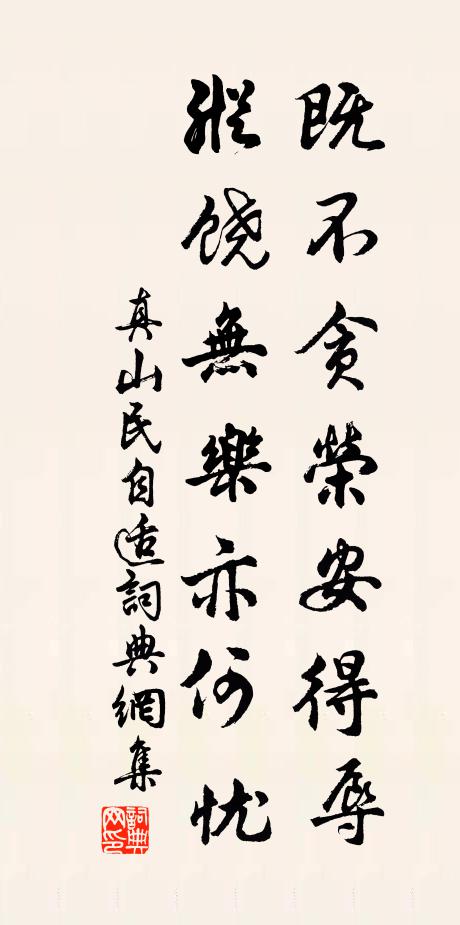 既不貪榮安得辱
縱饒無樂亦何忧
真山民自适詞典網集
詞典網印